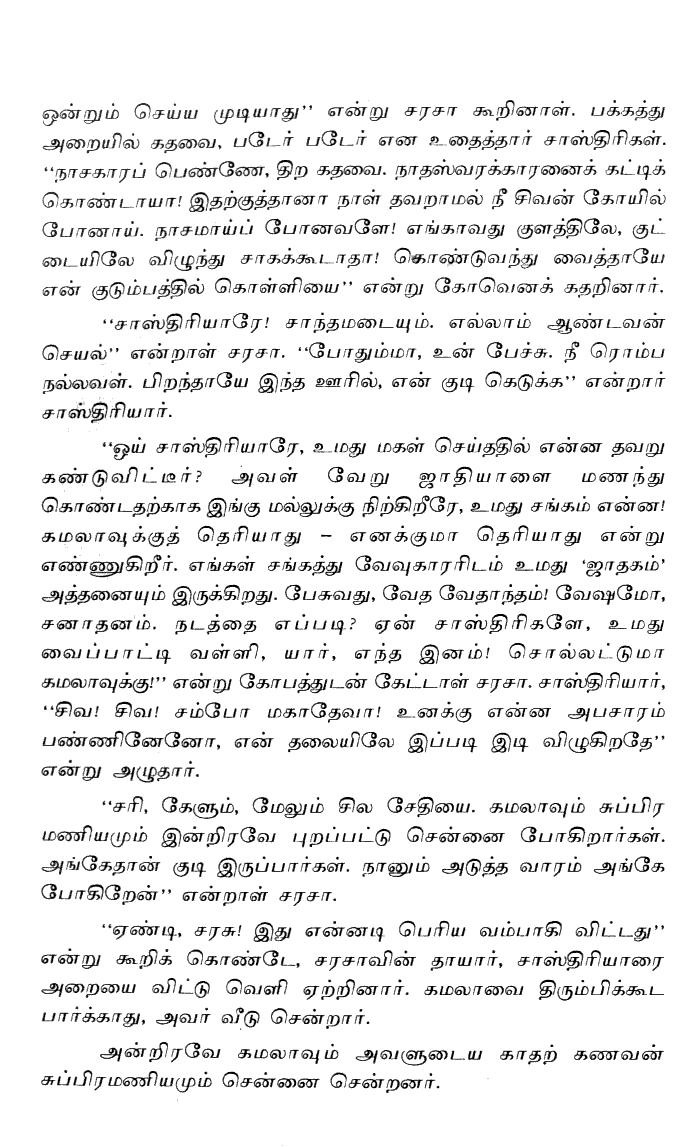 ஒன்றும் செய்ய முடியாது’’ என்று சரசா கூறினாள். பக்கத்து
அறையில் கதவை, படேர் படேர் என உதைத்தார் சாஸ்திரிகள்.
‘‘நாசகாரப் பெண்ணே, திற கதவை. நாதஸ்வரக்காரனைக் கட்டிக்
கொண்டாயா! இதற்குத்தானா நாள் தவறாமல் நீ சிவன் கோயில்
போனாய். நாசமாய்ப் போனவளே! எங்காவது குளத்திலே, குட்
டையிலே விழுந்து சாகக்கூடாதா! கொண்டுவந்து வைத்தாயே
என் குடும்பத்தில் கொள்ளியை’’ என்று கோவெனக் கதறினார்.
‘‘சாஸ்திரியாரே! சாந்தமடையும். எல்லாம் ஆண்டவன்
செயல்’’ என்றாள் சரசா. ‘‘போதும்மா, உன் பேச்சு. நீ ரொம்ப
நல்லவள். பிறந்தாயே இந்த ஊரில், என் குடி கெடுக்க’’ என்றார்
சாஸ்திரியார்.
‘‘ஓய் சாஸ்திரியாரே, உமது மகள் செய்ததில் என்ன தவறு
கண்டுவிட்டீர்? அவள் வேறு ஜாதியாளை மணந்து
கொண்டதற்காக இங்கு மல்லுக்கு நிற்கிறீரே, உமது சங்கம் என்ன!
கமலாவுக்குத் தெரியாது – எனக்குமா தெரியாது என்று
எண்ணுகிறீர். எங்கள் சங்கத்து வேவுகாரரிடம் உமது ‘ஜாதகம்’
அத்தனையும் இருக்கிறது. பேசுவது, வேத வேதாந்தம்! வேஷமோ,
சனாதனம். நடத்தை எப்படி? ஏன் சாஸ்திரிகளே, உமது
வைப்பாட்டி வள்ளி, யார், எந்த இனம்! சொல்லட்டுமா
கமலாவுக்கு!’’ என்று கோபத்துடன் கேட்டாள் சரசா. சாஸ்திரியார்,
‘‘சிவ! சிவ! சம்போ மகாதேவா! உனக்கு என்ன அபசாரம்
பண்ணினேனோ, என் தலையிலே இப்படி இடி விழுகிறதே’’
என்று அழுதார்.
‘‘சரி, கேளும், மேலும் சில சேதியை. கமலாவும் சுப்பிர
மணியமும் இன்றிரவே புறப்பட்டு சென்னை போகிறார்கள்.
அங்கேதான் குடி இருப்பார்கள். நானும் அடுத்த வாரம் அங்கே
போகிறேன்’’ என்றாள் சரசா.
‘‘ஏண்டி, சரசு! இது என்னடி பெரிய வம்பாகி விட்டது’’
என்று கூறிக் கொண்டே, சரசாவின் தாயார், சாஸ்திரியாரை
அறையை விட்டு வெளி ஏற்றினார். கமலாவை திரும்பிக்கூட
பார்க்காது, அவர் வீடு சென்றார்.
அன்றிரவே கமலாவும் அவளுடைய காதற் கணவன்
சுப்பிரமணியமும் சென்னை சென்றனர்.